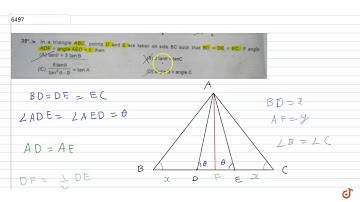 6497
In a triangle ABC, points D and E are taken on side BC such that BD = DE = EC. If angle
ADE = angle AED = θ, then
(A) tanθ = 3 tan B
tanC
(C) 6tanθ / tan² θ - 9 = tan A
angle C
BD = DE = EC
∠ADE = ∠AED = θ
AD = AE
DF = 1/2 DE
A
B
x
D
θ
F
θ
E
x
C
BD = x
AF = y
∠B = ∠C